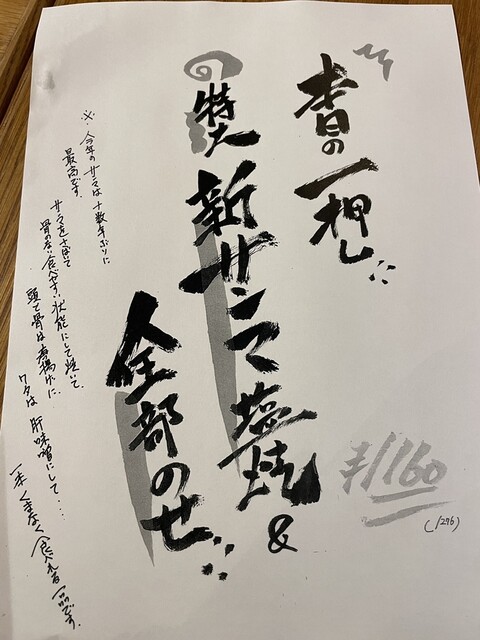 本日の一押し
特大新サンマ塩焼&
全部のせ
¥1160
(1276)
※今年のサンマは十数年ぶりに
最高です。
サンマをさばいて
骨のない食べやすい状態にして焼いて、
頭と骨は唐揚げに、
ワタは肝味噌にして…
一本くまなく食べれる一品です。